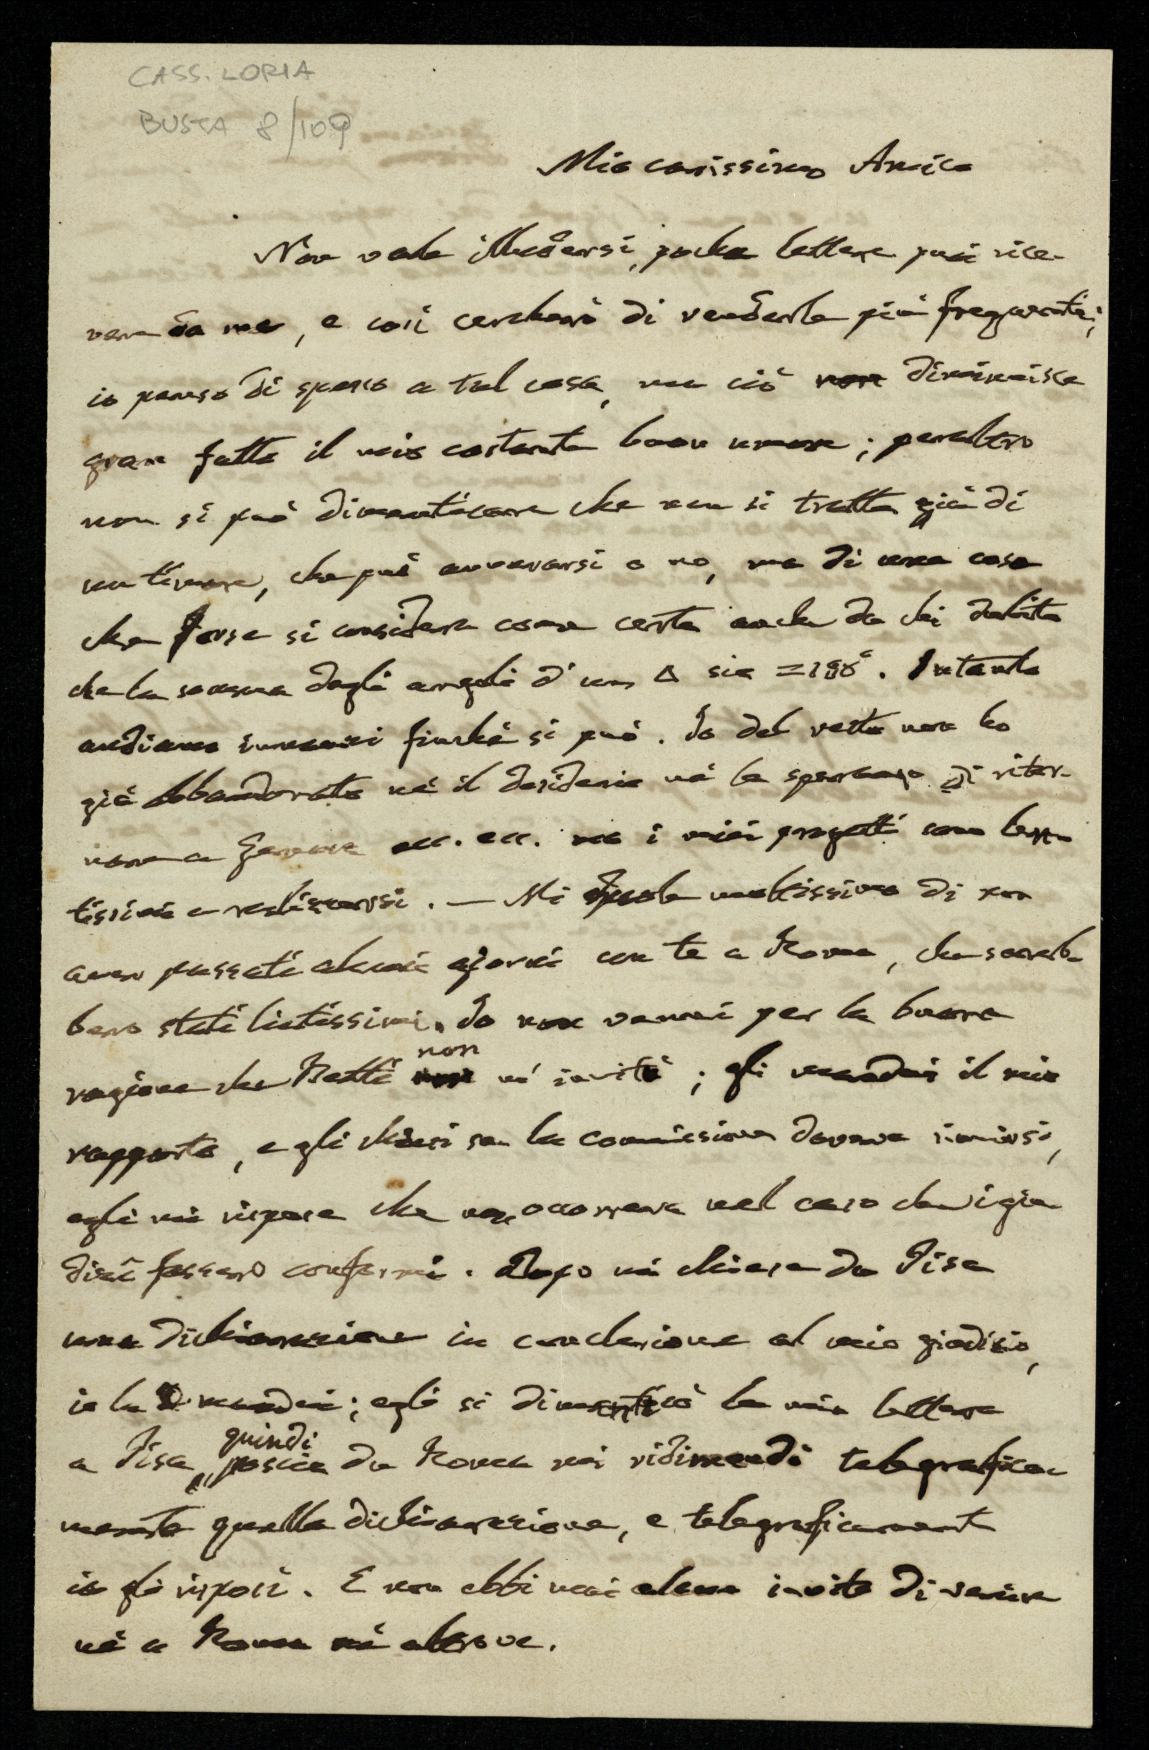 CASS. LORIA
BUSTA 8/109
Mio carissimo Amico
Non vale illudersi, poche lettere puoi rice-
vere da me, e così cercherò di renderle più frequenti;
io penso di spesso a tal cosa, ma ciò non diminuisce
gran fatto il mio costante buon umore; peraltro
non si può dimenticare che non si tratta già di
un timore, che può avverarsi o no, ma di una cosa
che forse si considera come certa anche da chi dubita
che la somma degli angoli d'un Δ sia =180°. Intanto
andiamo innanzi finchè si può. Io del resto non ho
già abbandonato nè il desiderio nè la speranza di ritor-
nare a Genova ecc. ecc. ma i miei progetti sono lon-
tissimi a realizzarsi. — Mi duole moltissimo di non
aver passati alcuni giorni con te a Roma, che sareb-
bero stati lietissimi. Io non venni per la buona
ragione che Betti non m'invitò; gli mandai il mio
rapporto, e gli chiesi se la commissione doveva riunirsi,
egli mi rispose che non occorreva nel caso che i giu-
dizi fossero conformi. Dopo mi chiese da Pisa
una dichiarazione in conclusione al mio giudizio,
io la mandai; egli si dimenticò la mia lettera
a Pisa, quindi poscia da Roma mi ridimandò telegrafica-
mente quella dichiarazione, e telegraficamente
io gli risposi. E non ebbi mai alcun invito di venire
nè a Roma nè altrove.